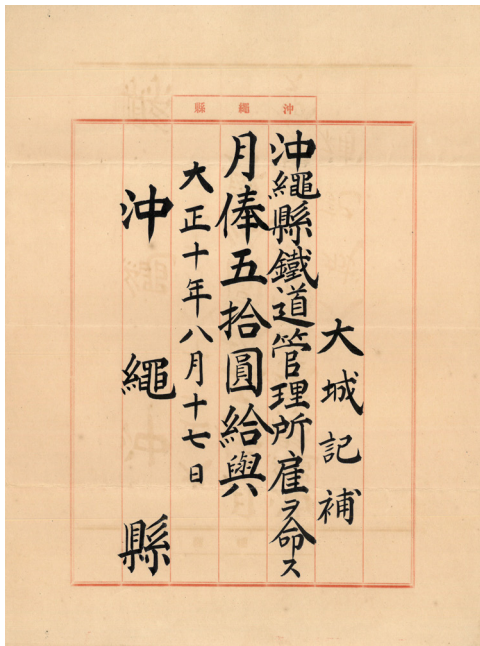 沖繩縣
大城記補
沖繩縣鐵道管理所雇ヲ命ス
月俸五拾圓給與
大正十年八月十七日
沖繩縣